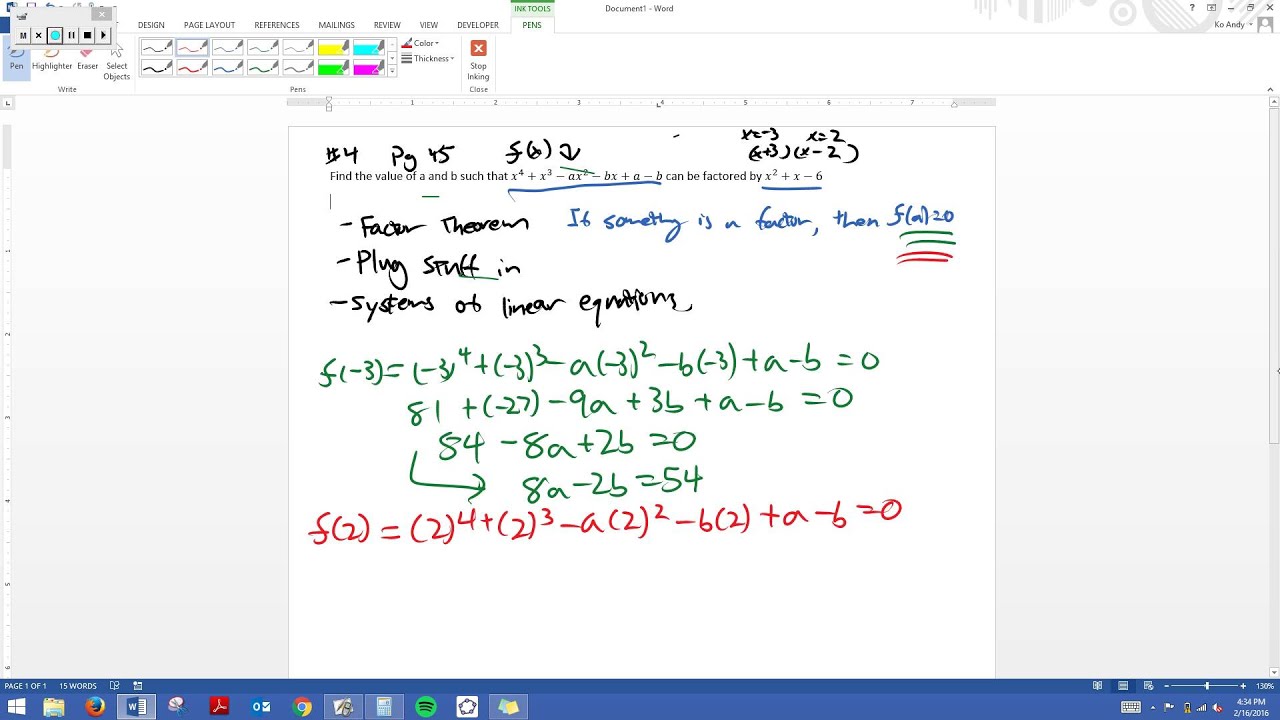 INK TOOLS
Document1 - Word
?
DESIGN PAGE LAYOUT REFERENCES MAILINGS REVIEW VIEW DEVELOPER PENS
Ko Andy
Pen Highlighter Eraser Select Objects
Color
Thickness
Stop Inking
Write Pens Close
1 2 3 4 5 6 7
#4 Pg 45 f(x) x=-3 x=2
(x+3)(x-2)
Find the value of a and b such that x⁴ + x³ − ax² − bx + a − b can be factored by x² + x − 6
- Factor Theorem If something is a factor, then f(a)=0
- Plug stuff in
- Systems of linear equations,
f(-3)=(-3)⁴+(-3)³-a(-3)²-b(-3)+a-b=0
81+(-27)-9a+3b+a-b=0
84-8a+2b=0
8a-2b=54
f(2)=(2)⁴+(2)³-a(2)²-b(2)+a-b=0
PAGE 1 OF 1 15 WORDS 130%
4:34 PM
2/16/2016